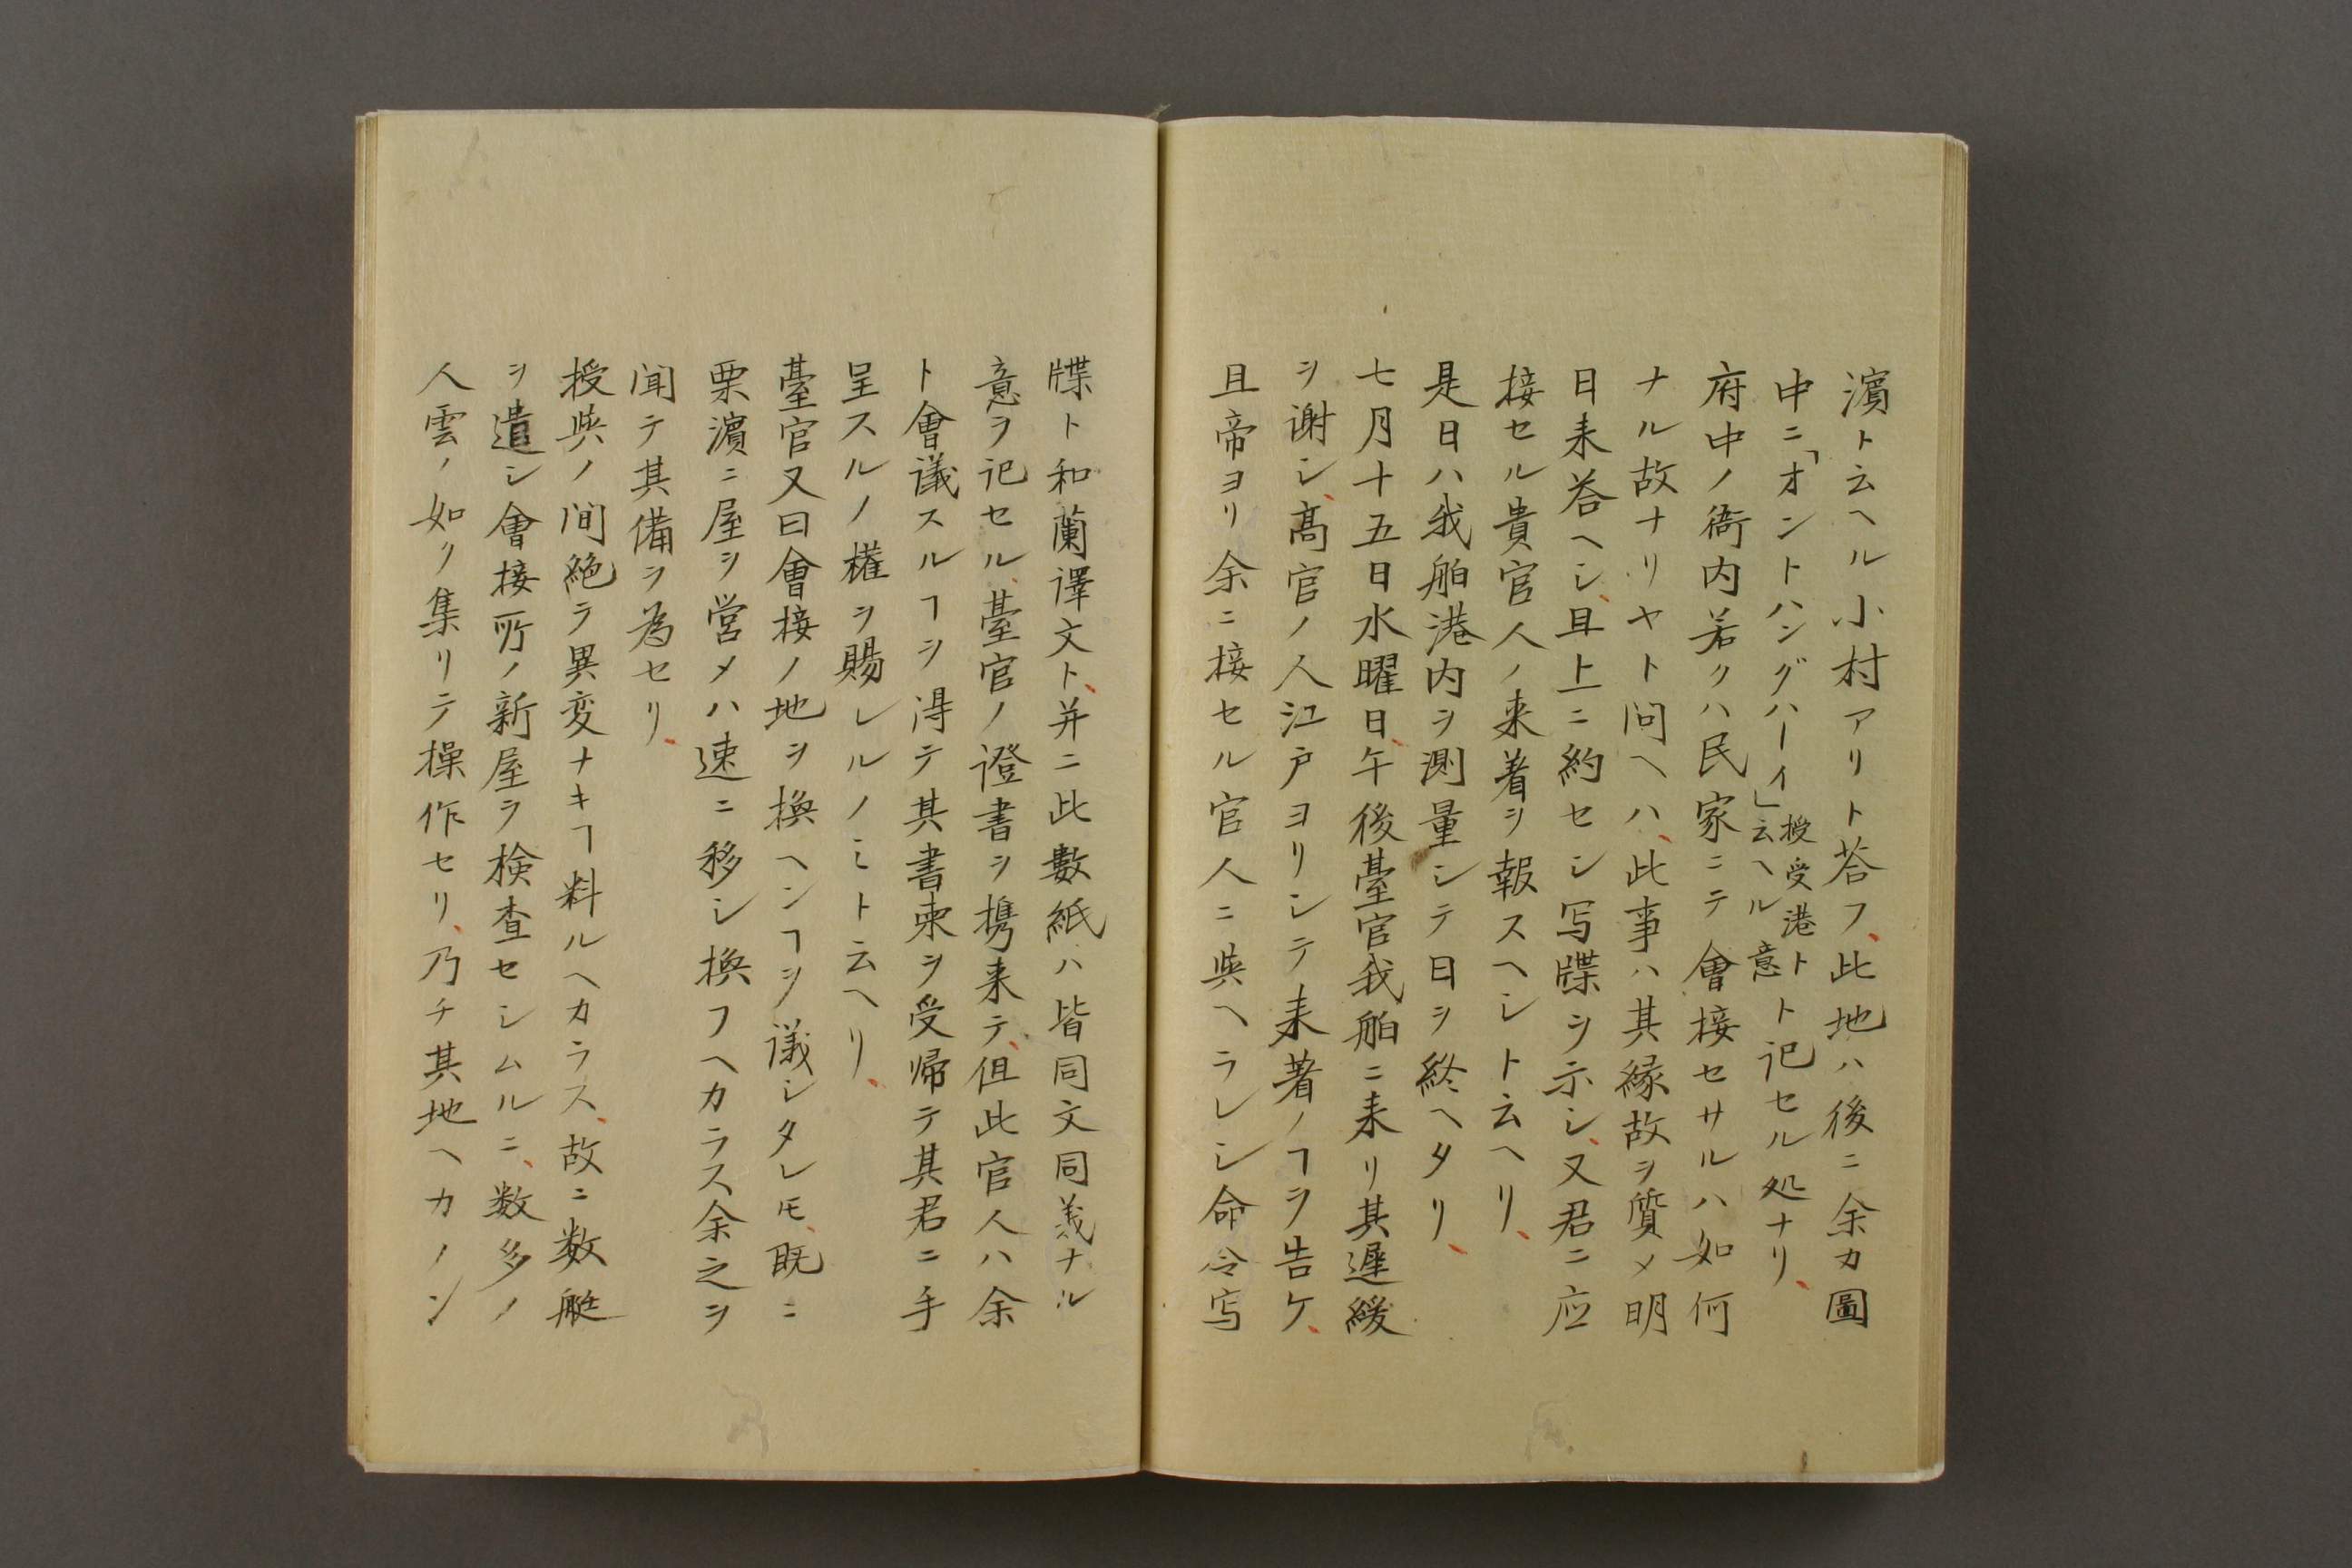 濵ト云ヘル小村アリト荅フ、此地ハ後ニ余カ圖
中ニ「オントハングハーイ」授受港ト云ヘル意ト記セル処ナリ、
府中ノ衙内若クハ民家ニテ會接セサルハ如何
ナル故ナリヤト問ヘハ、此事ハ其縁故ヲ質メ明
日来荅ヘシ、且上ニ約セシ写牒ヲ示シ、又君ニ应
接セル貴官人ノ来着ヲ報スヘシト云ヘリ、
是日ハ我舶港内ヲ測量シテ日ヲ終ヘタリ、
七月十五日水曜日、午後臺官我舶ニ来リ其遲緩
ヲ謝シ、髙官ノ人江戸ヨリシテ来著ノヿヲ告ケ、
且帝ヨリ余ニ接セル官人ニ與ヘラレシ命令写
牒ト和蘭譯文ト、并ニ此數紙ハ皆同文同義ナル
意ヲ記セル、臺官ノ證書ヲ携来テ、但此官人ハ余
ト會議スルヿヲ淂テ其書柬ヲ受帰テ其君ニ手
呈スルノ權ヲ賜レルノミト云ヘリ、
臺官又曰會接ノ地ヲ換ヘンヿヲ議シタレ𪜈、既ニ
栗濵ニ屋ヲ営メハ速ニ移シ換フヘカラス余之ヲ
聞テ其備ヲ為セリ、
授與ノ間絶テ異変ナキヿ料ルヘカラス、故ニ数艇
ヲ遣シ會接所ノ新屋ヲ検査セシムルニ、数多ノ
人雲ノ如ク集リテ操作セリ、乃チ其地ヘカノン